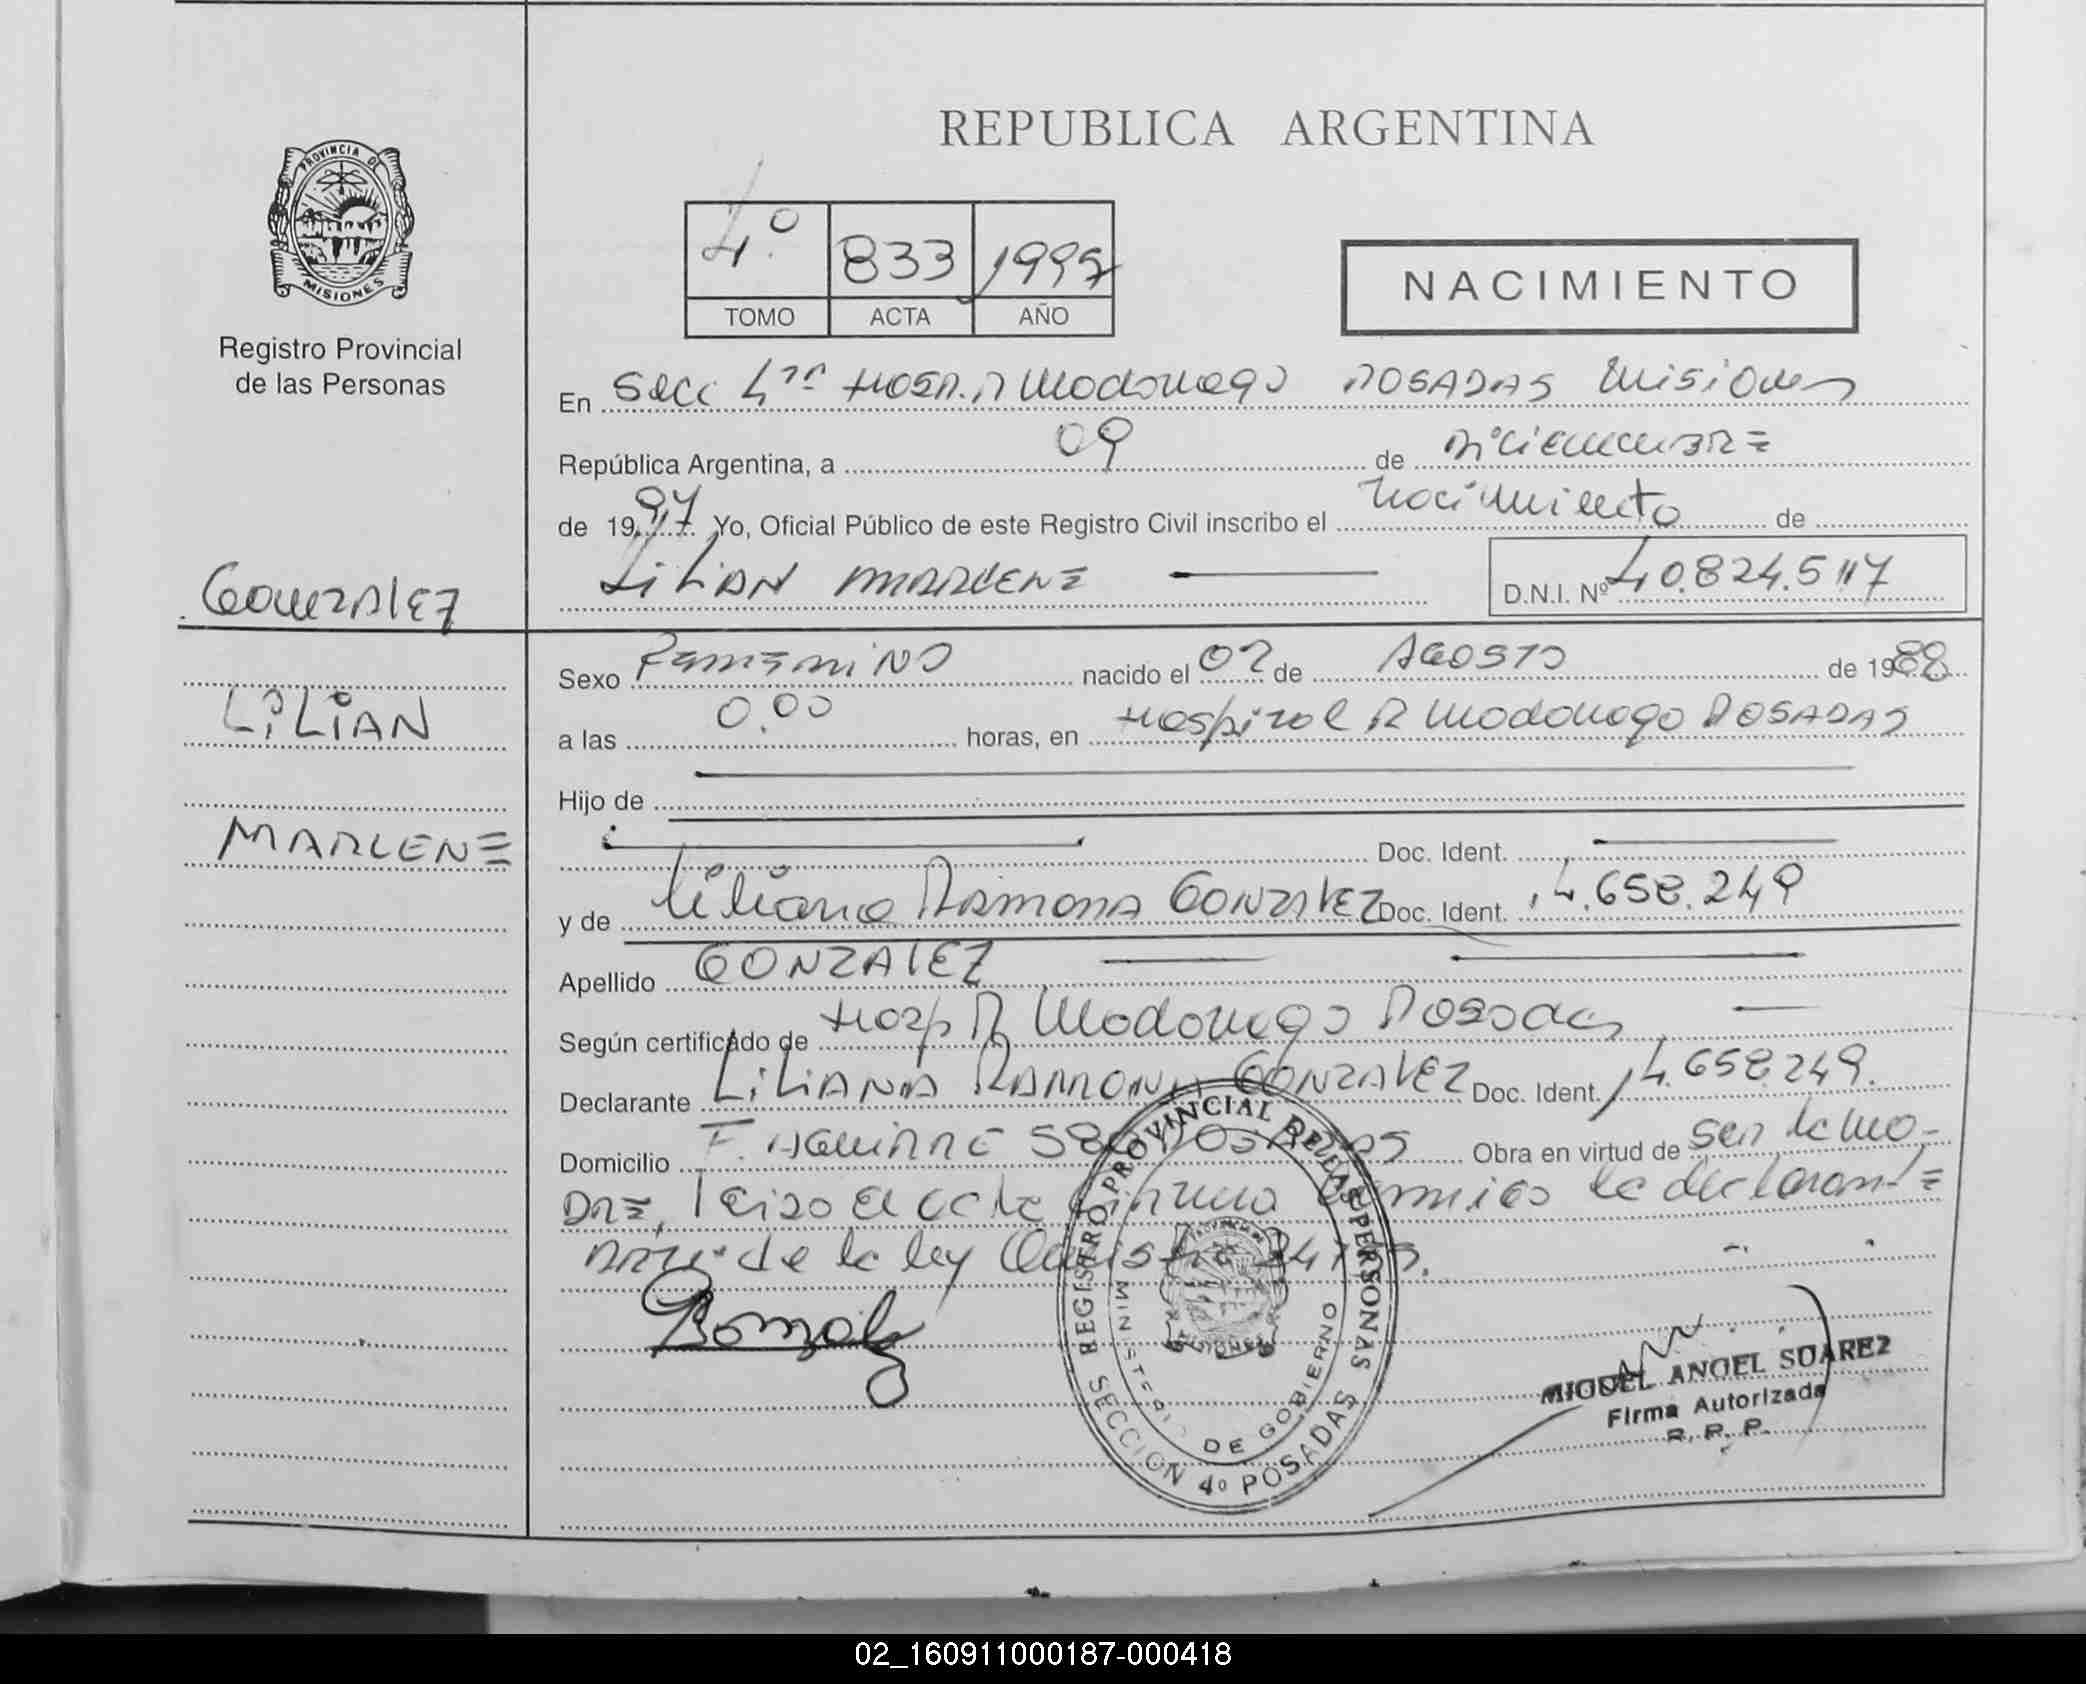 REPUBLICA ARGENTINA
PROVINCIA DE
MISIONES
Registro Provincial
de las Personas
4º 833
TOMO ACTA AÑO
NACIMIENTO
En Secc 4ta Hosp. R Madariaga POSADAS Misiones
República Argentina, a 09 de Diciembre
de 1997 Yo, Oficial Público de este Registro Civil inscribo el Nacimiento de
LiLiAN MARLENE D.N.I. Nº 40.824.517
GONZALEZ
LiLiAN
MARLENE
Sexo Femenino nacido el 02 de AGOSTO de 19
a las 0.00 horas, en Hospital R Madariaga POSADAS
Hijo de
Doc. Ident.
y de Liliana RAMONA GONZALEZ Doc. Ident. 14.658.249
Apellido GONZALEZ
Según certificado de Hosp R Madariaga Posadas
Declarante LiLiANA RAMONA GONZALEZ Doc. Ident. 14.658.249.
Domicilio F. AGUIRRE POSADAS Obra en virtud de ser la ma-
DRE, Leida el acta firma la declarante
de la ley
Gonzalez
REGISTRO PROVINCIAL DE LAS PERSONAS
MINISTERIO DE GOBIERNO
SECCION 4º POSADAS
MIGUEL ANGEL SUAREZ
Firma Autorizada
R. P. P.
02_160911000187-000418